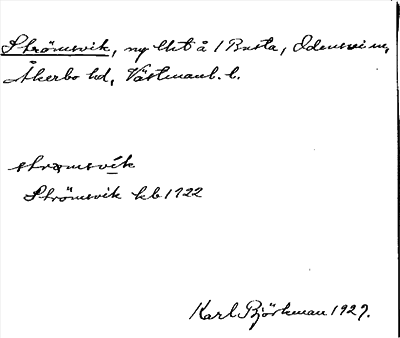 Strömsvik, ny lht å 1 Busta, Odensvi sn,
Åkerbo hd, Västmanl. l.
strømsvik
Strömsvik kb 1722
Karl Björkman 1927.